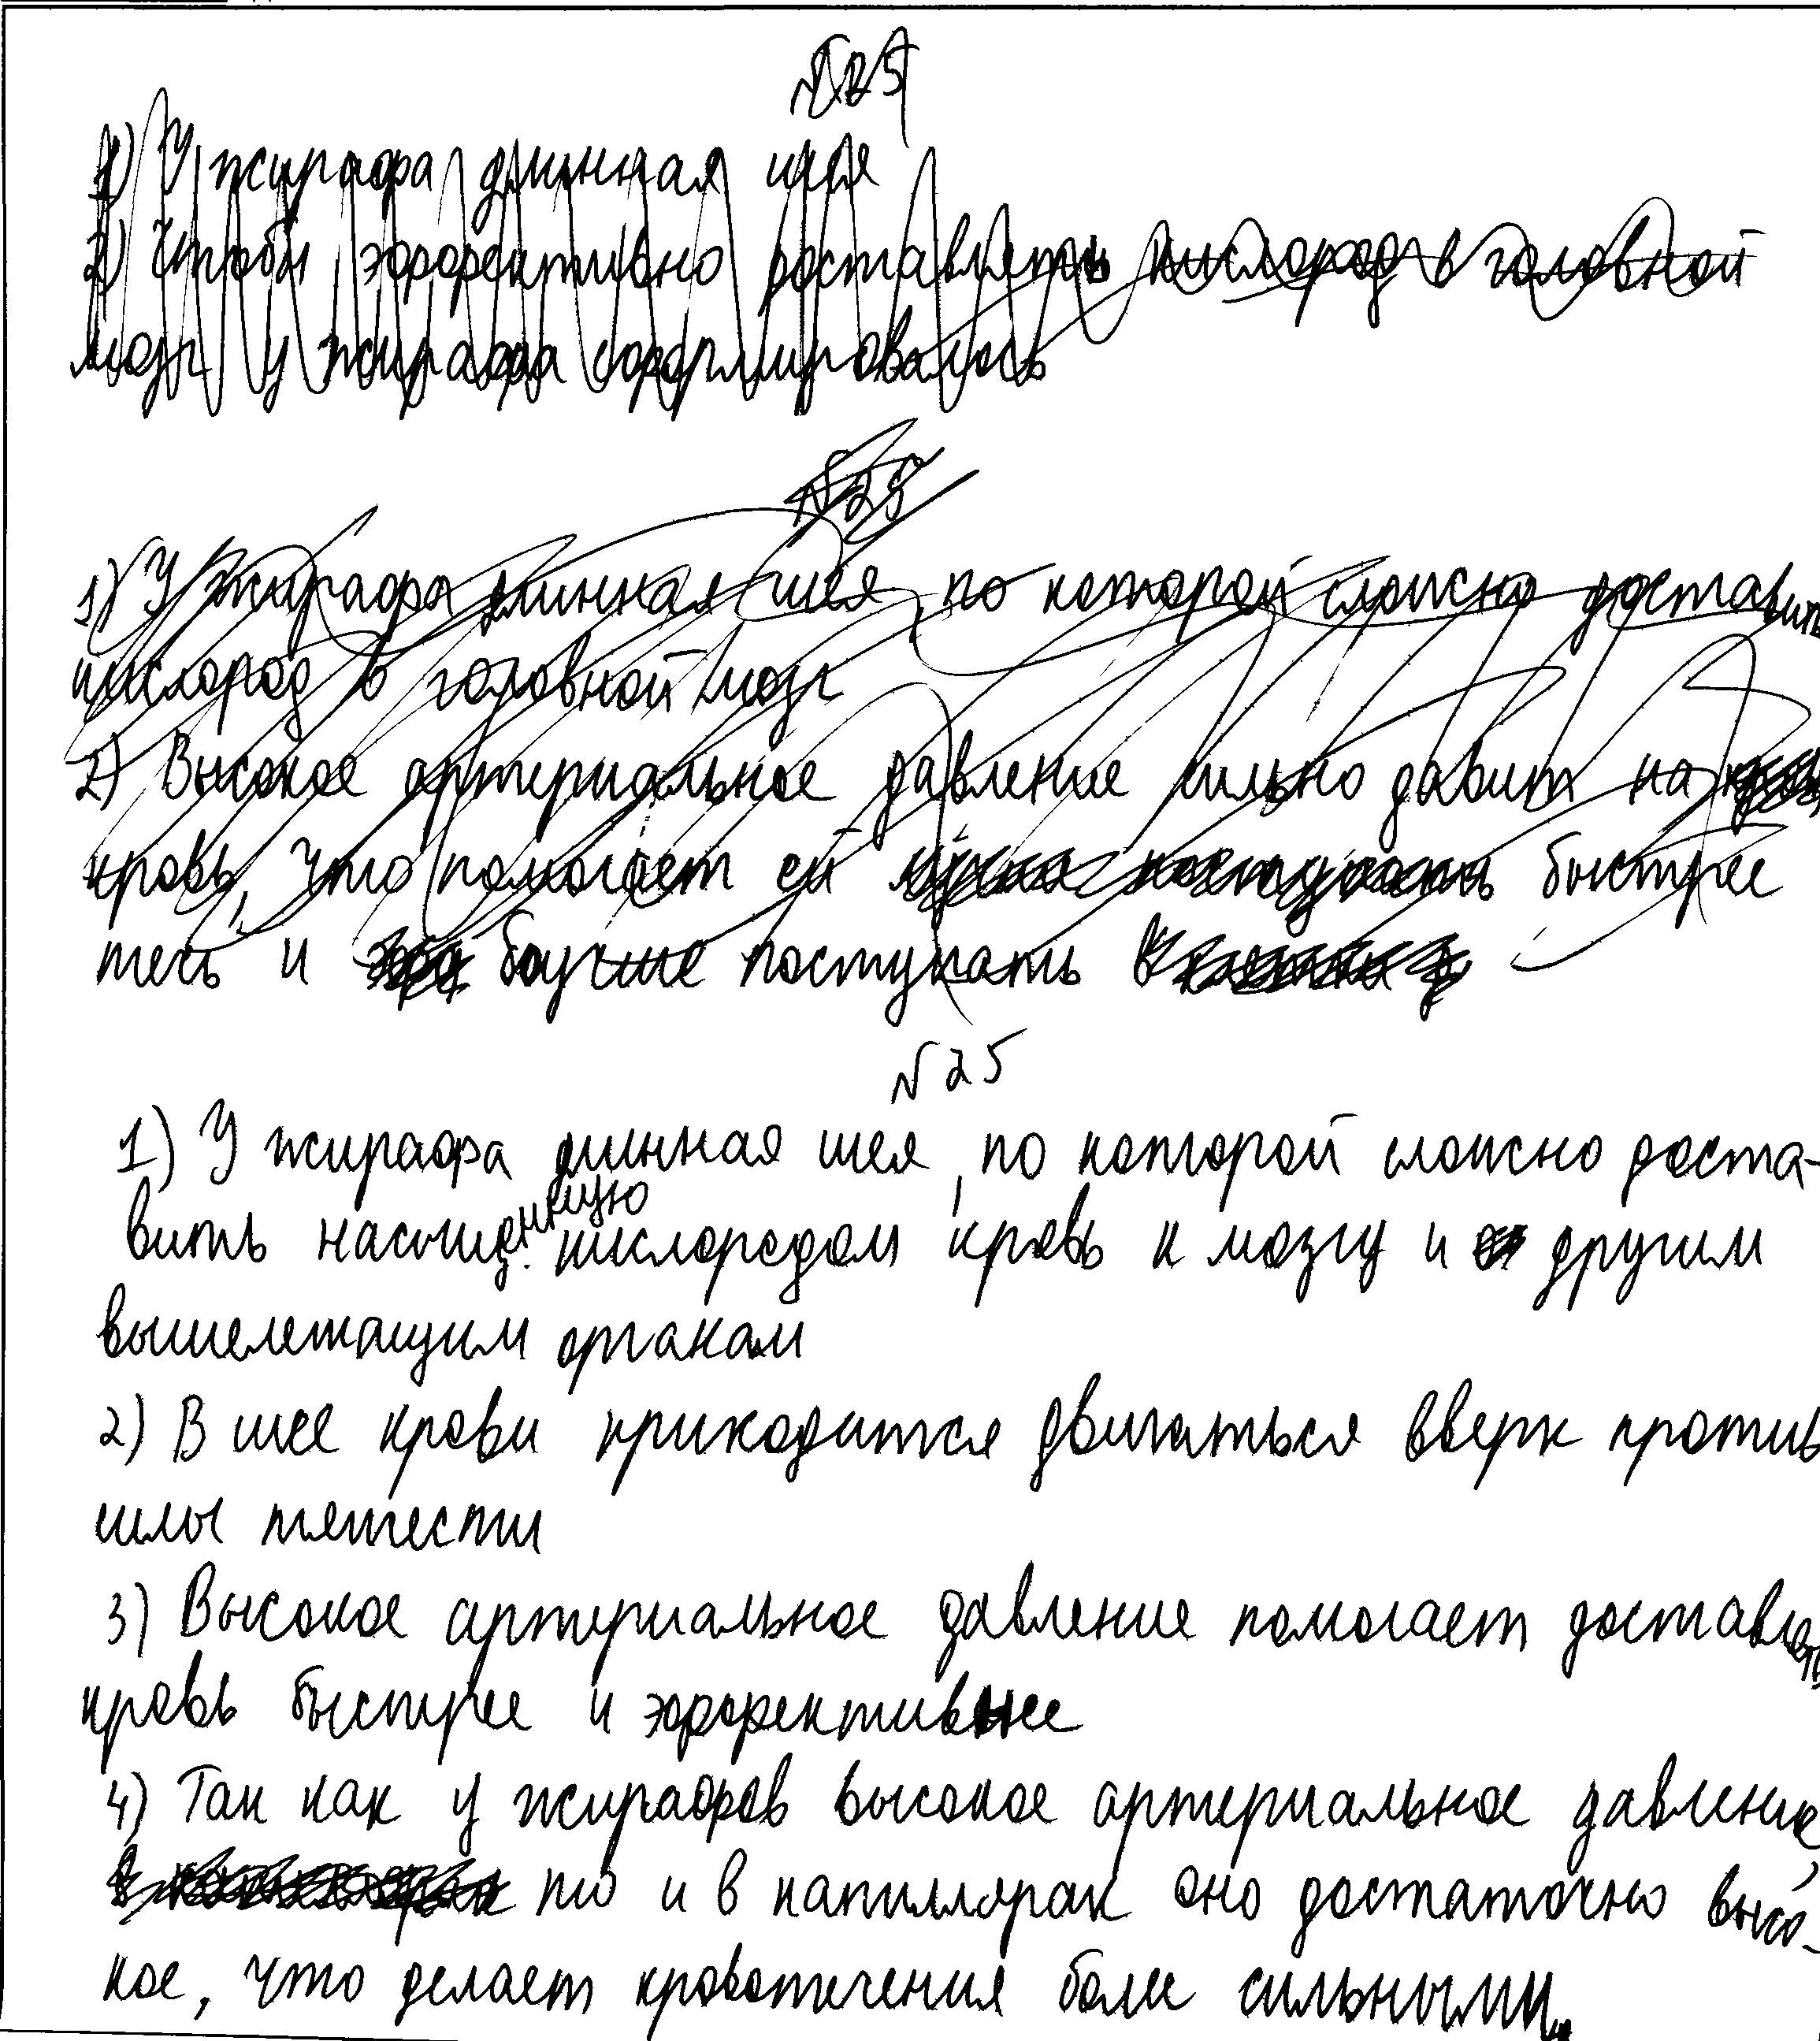 №25
1) У жирафа длинная шея
2) Чтобы эффективно доставлять кислород в головной
мозг у жирафа сформировалось
№25
1) У жирафа длинная шея, по которой сложно доставить
кислород в головной мозг
2) Высокое артериальное давление сильно давит на
кровь, что помогает ей быстрее
течь и лучше поступать в
№25
1) У жирафа длинная шея, по которой сложно доста-
вить насыщенную кислородом кровь к мозгу и другим
вышележащим органам
2) В шее крови приходится двигаться вверх против
силы тяжести
3) Высокое артериальное давление помогает доставлять
кровь быстрее и эффективнее
4) Так как у жирафов высокое артериальное давление,
то и в капиллярах оно достаточно высо-
кое, что делает кровотечения более сильными.